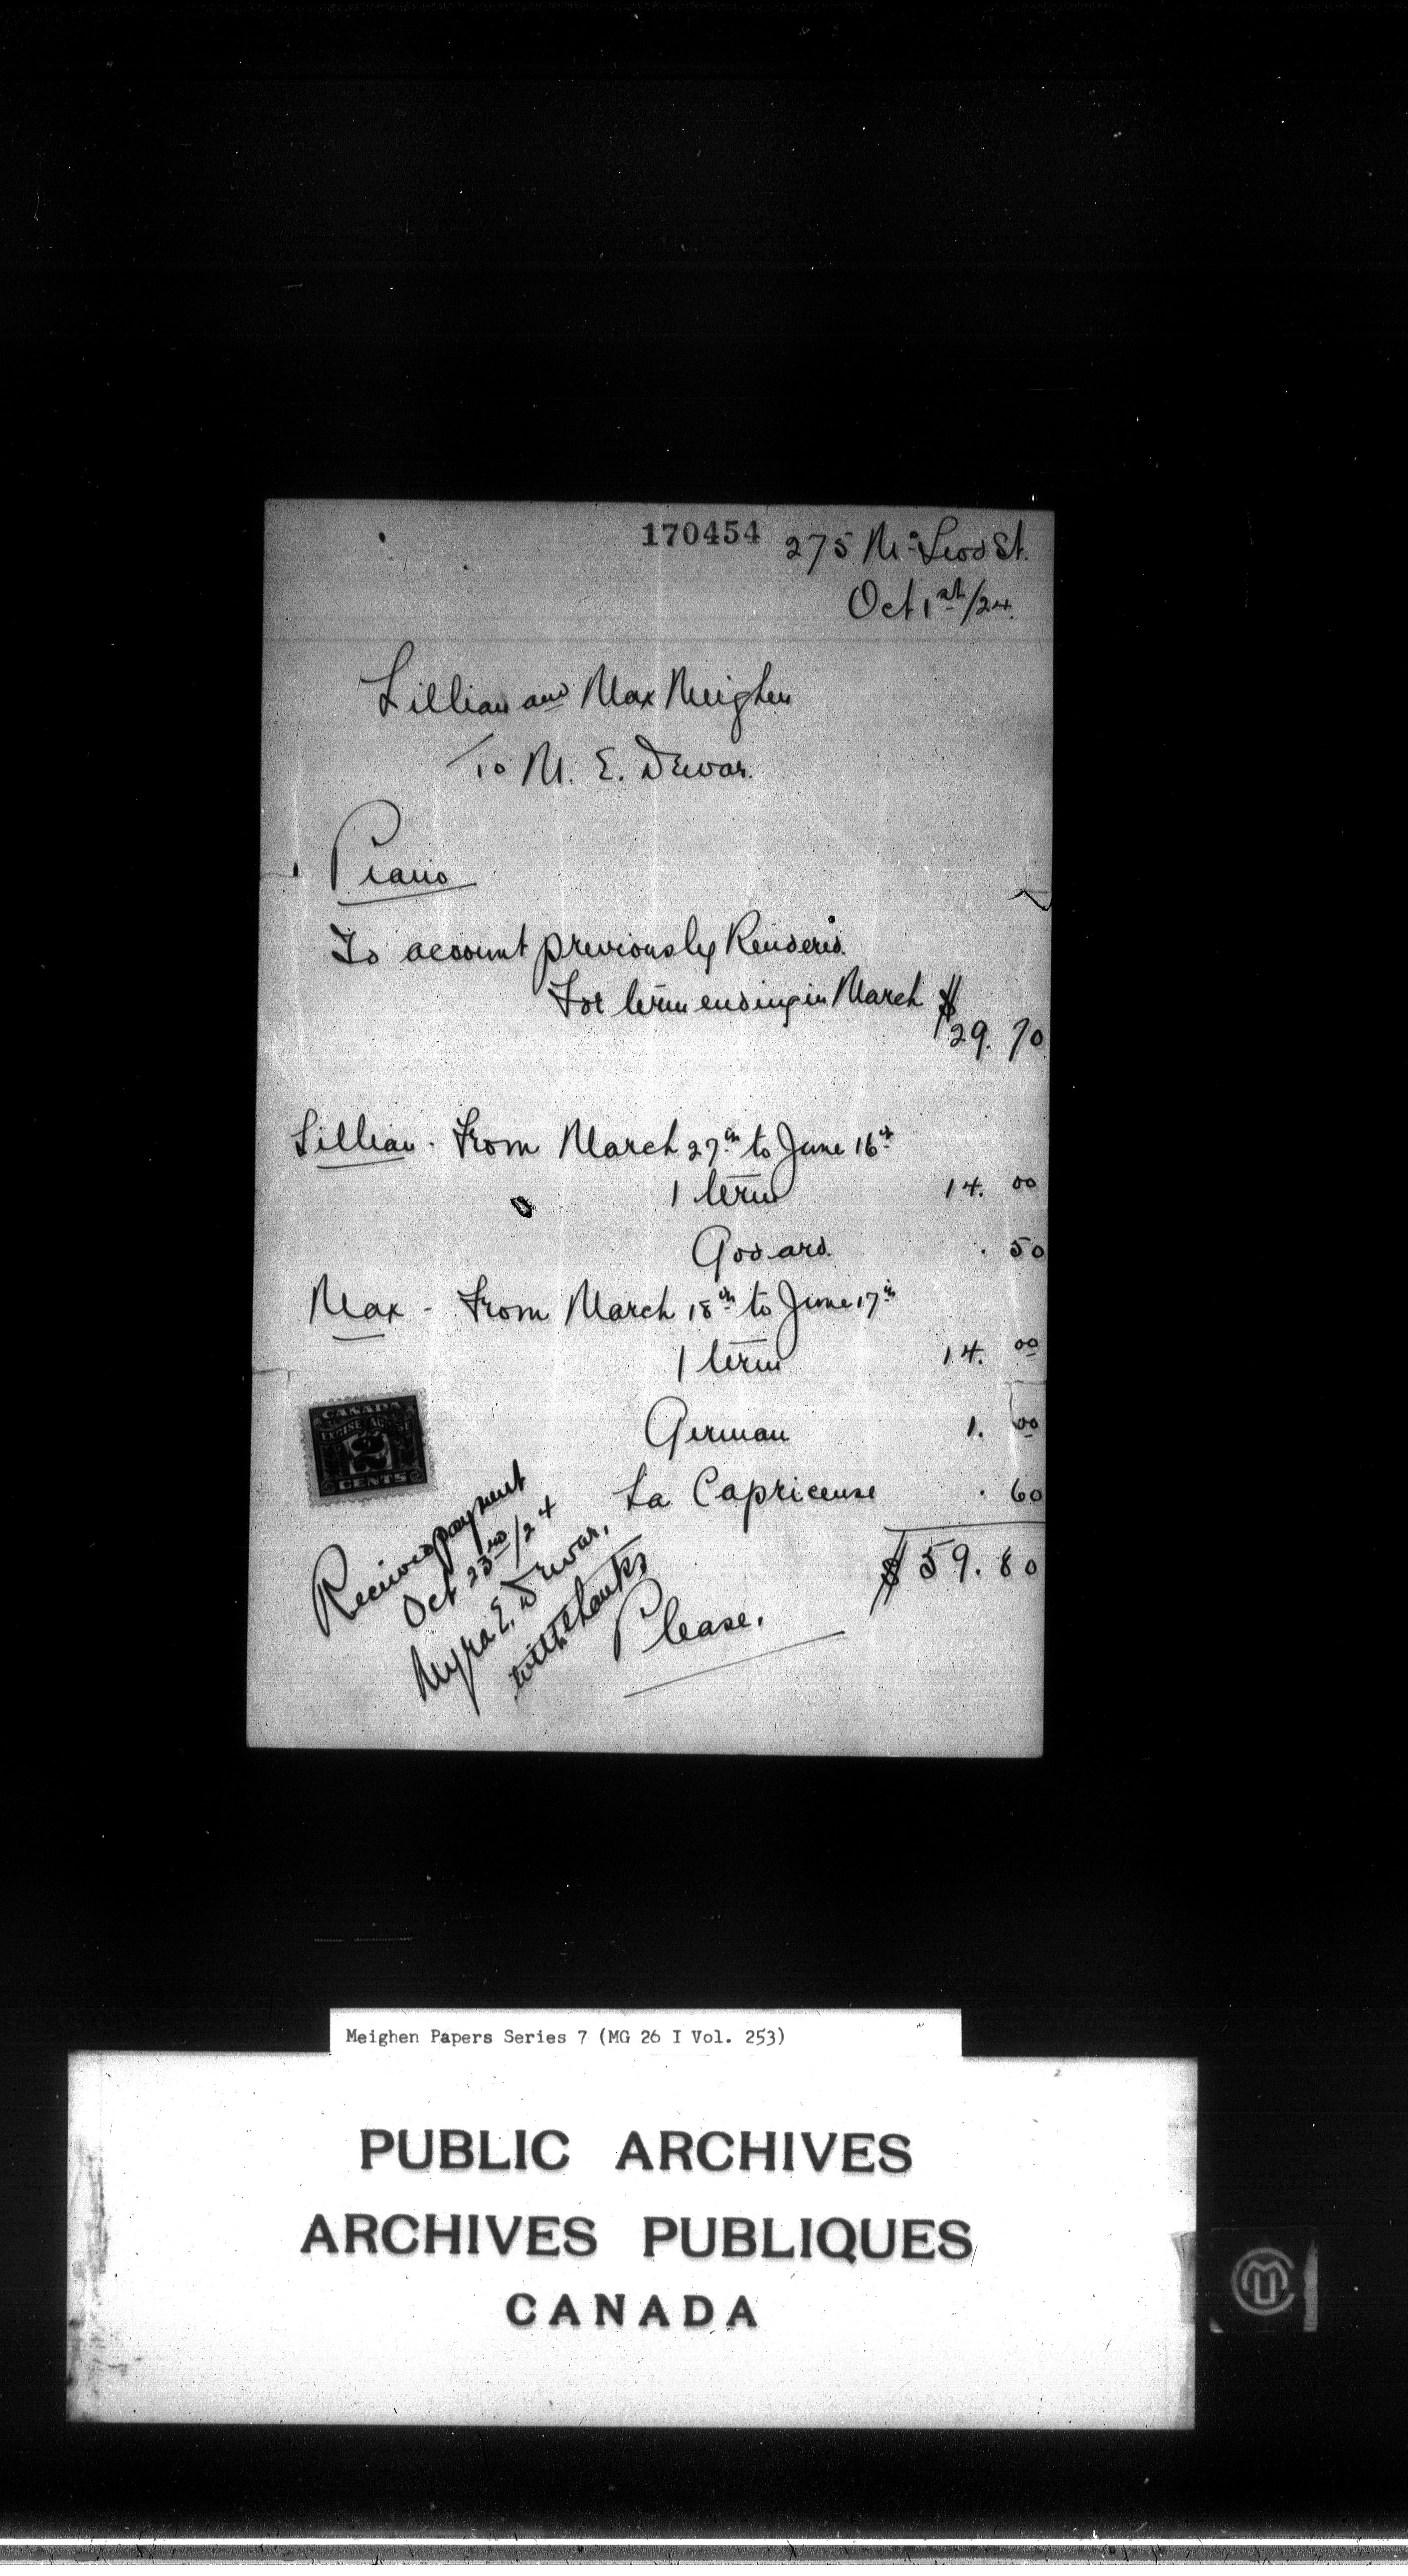 170454
275 McLeod St.
Oct 1st/24.
Lillian and Max Meighen
To M. E. Dewar.
Piano
To account previously Rendered.
For term ending in March $
29. 70
Lillian - From March 27th to June 16th
1 term 14. 00
Godard. . 50
Max - From March 18th to June 17th
1 term 14. 00
German 1. 00
La Capricieuse . 60
$59. 80
Please.
CANADA
EXCISE
2
CENTS
Received payment
Oct 23rd/24
Myra E. Dewar,
with thanks
Meighen Papers Series 7 (MG 26 I Vol. 253)
PUBLIC ARCHIVES
ARCHIVES PUBLIQUES
CANADA